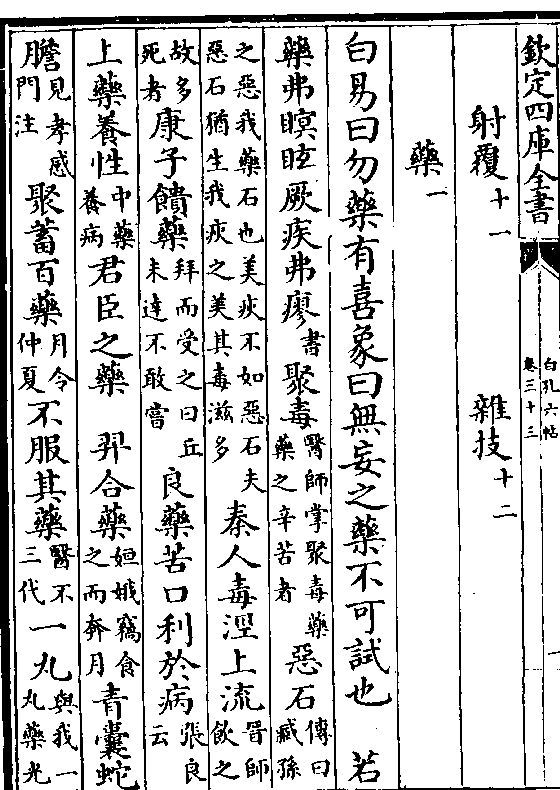 欽定四庫全書
白孔六帖
卷三十三
射覆十一
雜技十二
藥一
白易曰勿藥有喜象曰無妄之藥不可試也 若
藥弗瞑眩厥疾弗瘳書聚毒醫師掌聚毒藥藥之辛苦者惡石傳曰臧孫
之惡我藥石也美疢不如惡石夫惡石猶生我疢之美其毒滋多秦人毒涇上流晉師飲之
故多死者康子饋藥拜而受之曰丘未達不敢嘗良藥苦口利於病張良云
上藥養性中藥養病君臣之藥 羿合藥姮娥竊食之而奔月青囊蛇
膽見孝感門注聚蓄百藥月令仲夏不服其藥醫不三代一丸與我一丸藥光